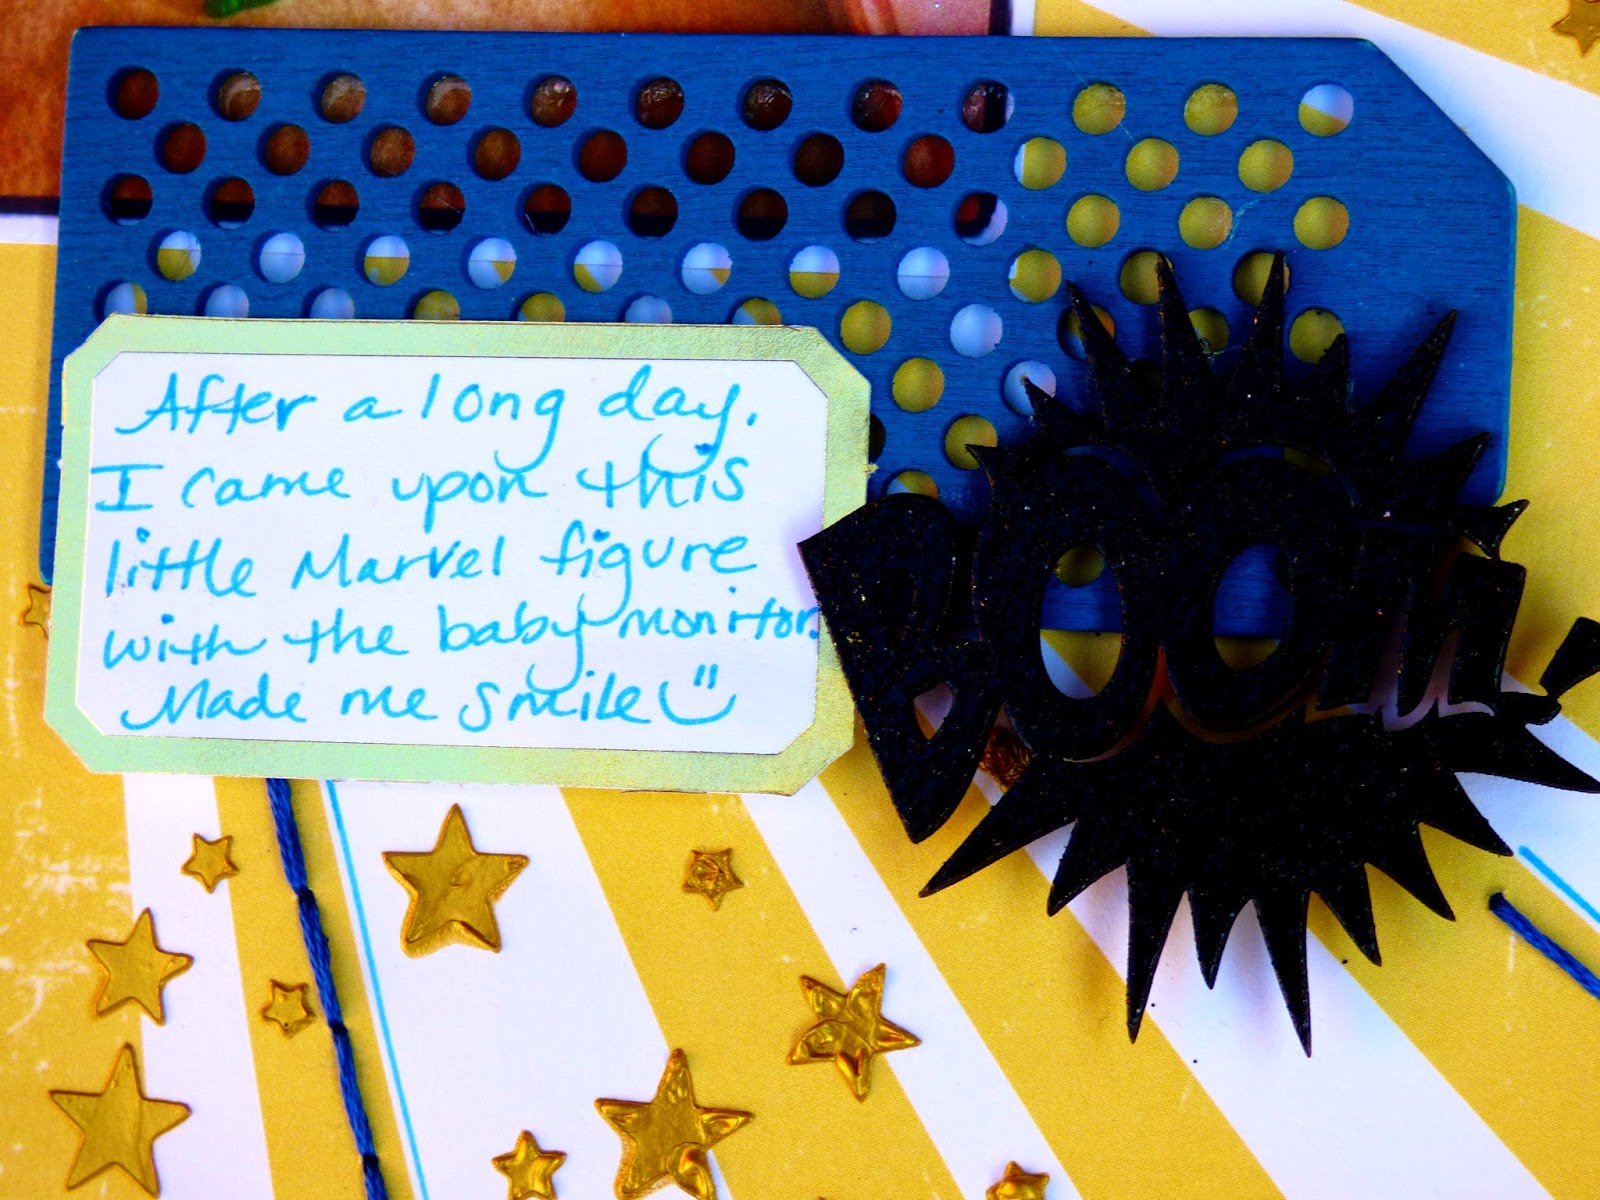 After a long day,
I came upon this
little Marvel figure
with the baby monitor.
Made me smile
BOOM!